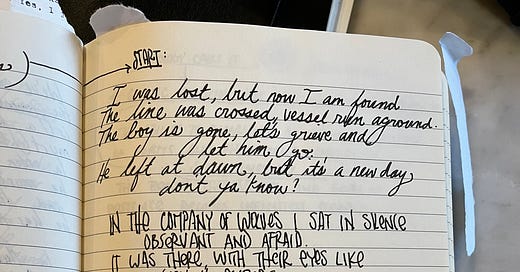 Yes, I
START:
I was lost, but now I am found
The line was crossed, vessel run aground.
The boy is gone, let's grieve and
let him go.
He left at dawn, but it's a new day,
dont ya know?
IN THE COMPANY OF WOLVES I SAT IN SILENCE
OBSERVANT AND AFRAID.
IT WAS THERE, WITH THEIR EYES LIKE